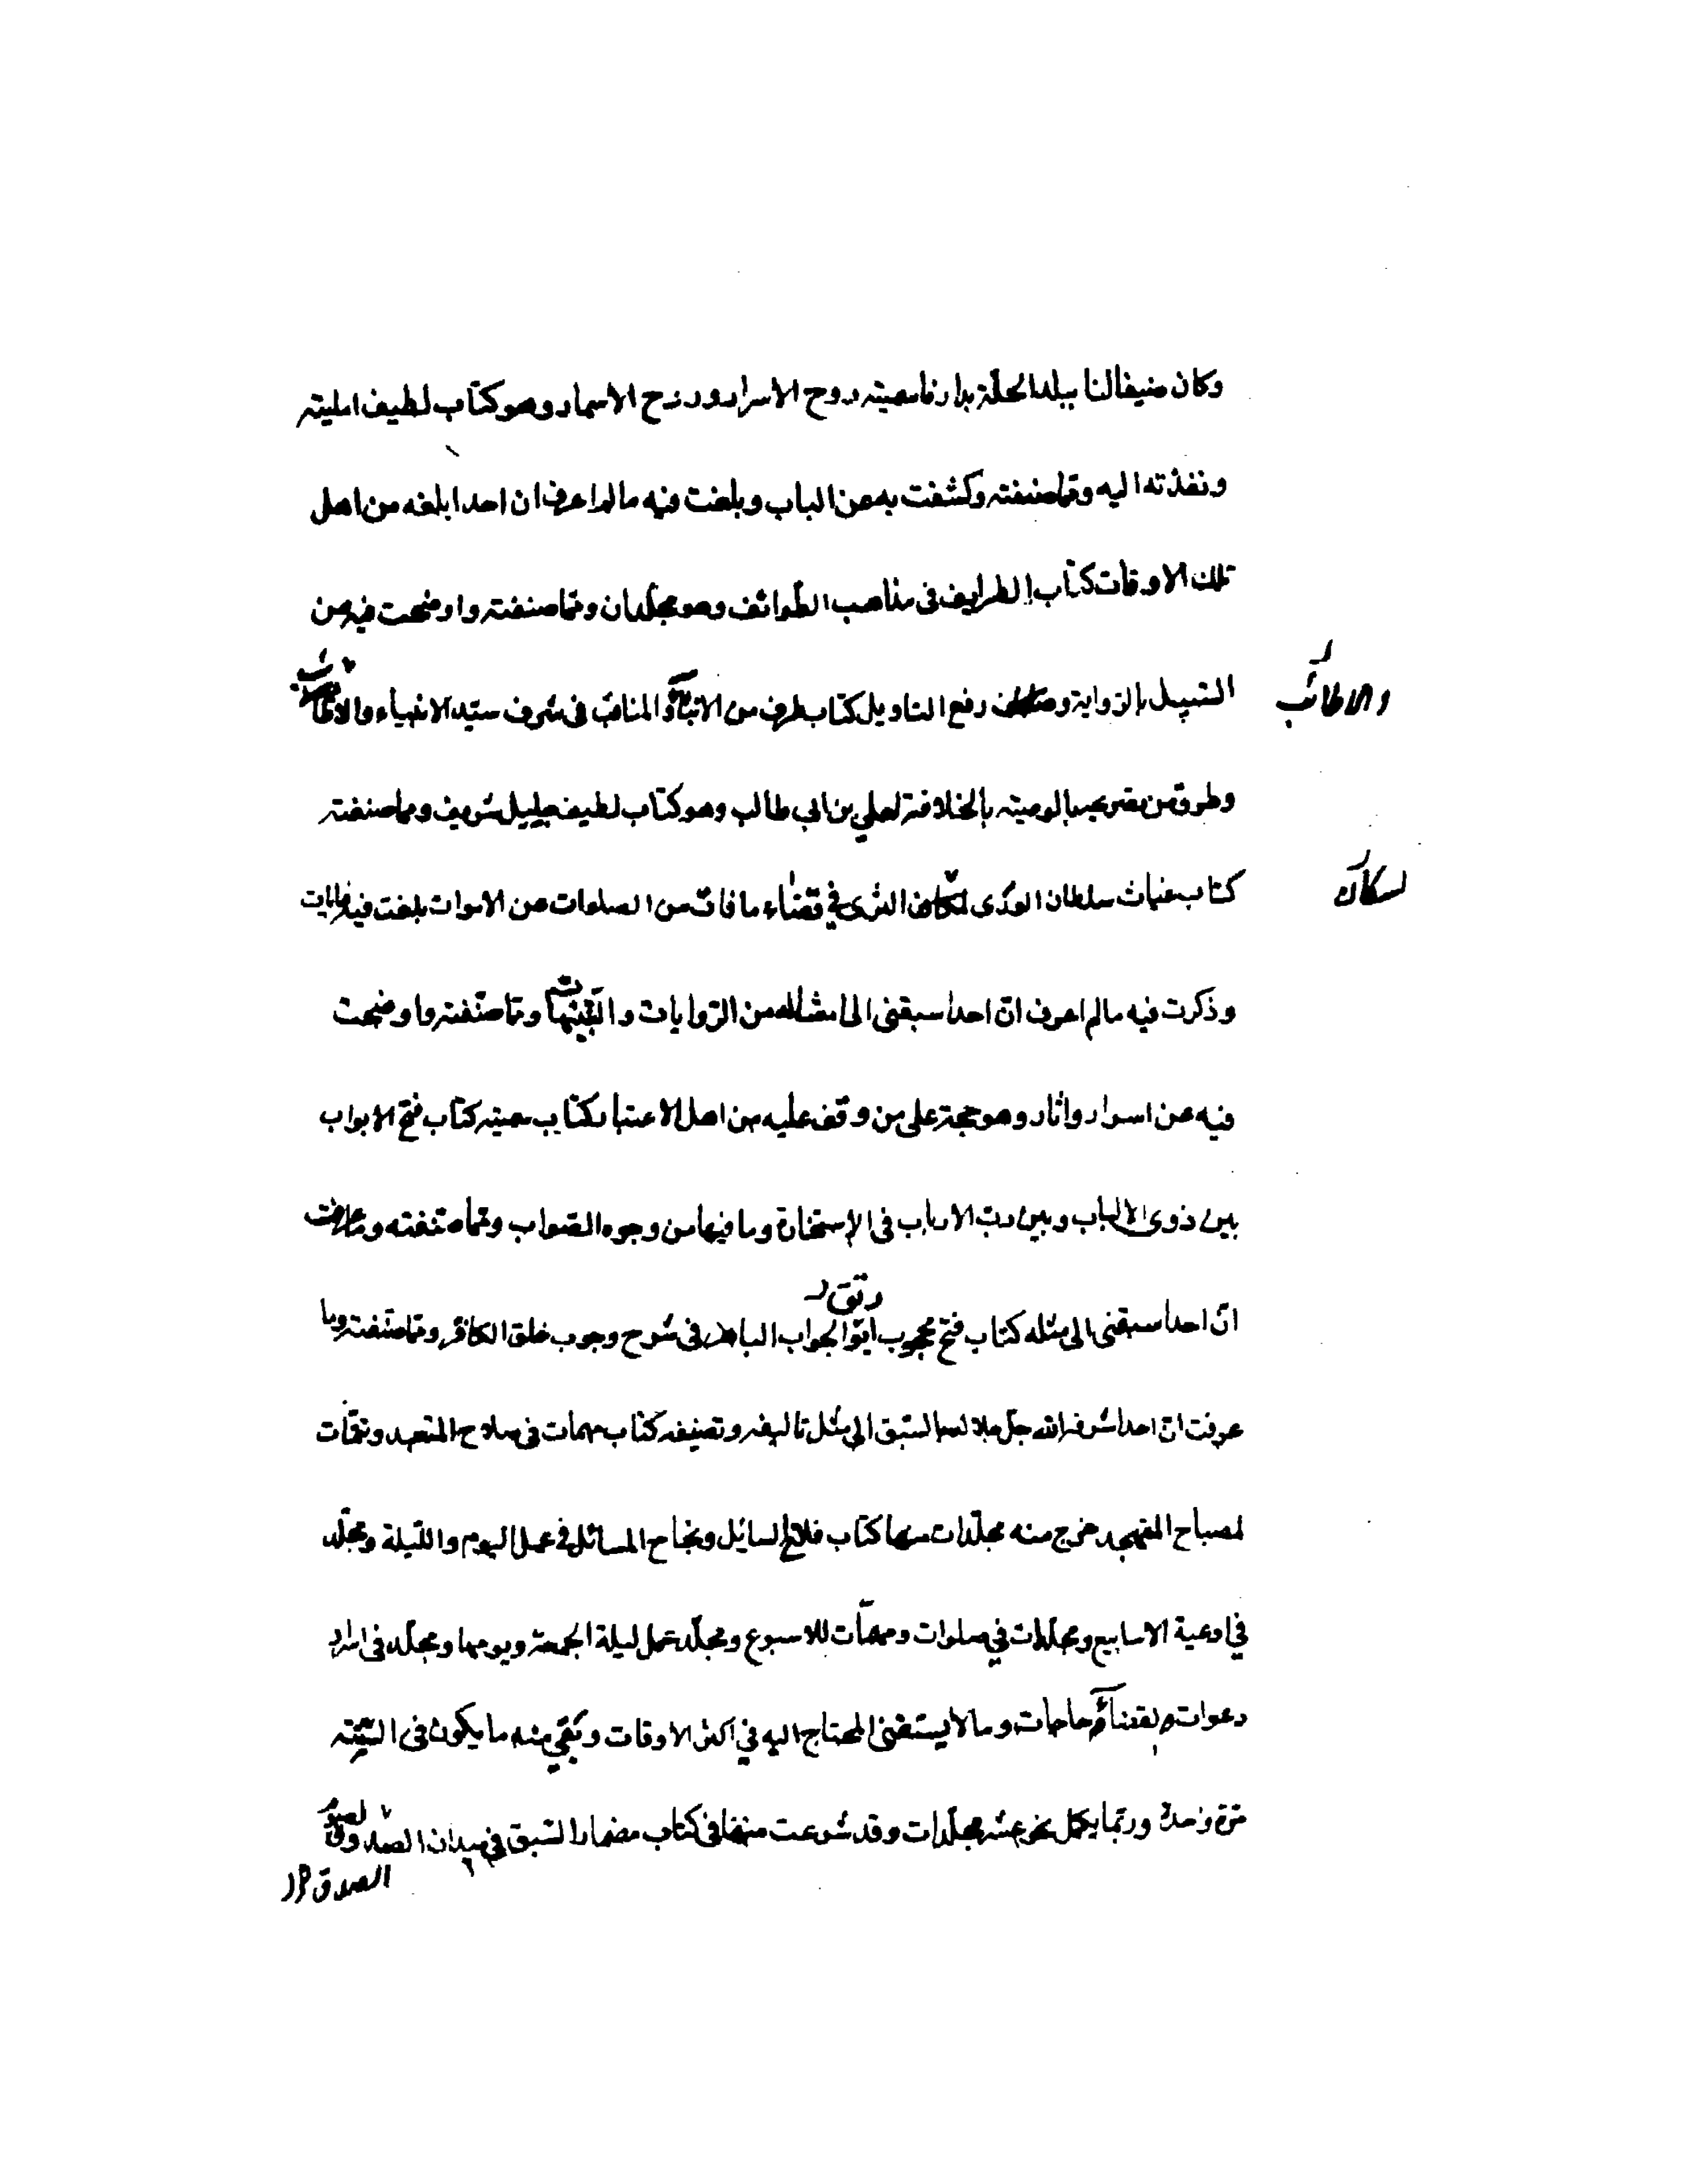 وكان ضيفا لنا ببلد الحلة بدارنا سميته روح الاسرار وروح الاسمار وهو كتاب لطيف امليته
ونفذته اليه ومما صنفته وكشفت به عن الباب وبلغت فيه ما لم اعرف ان احدا بلغه من اهل
تلك الاوقات كتاب الطرايف فى مذاهب الطوائف وهو مجلدان ومما صنفته واوضحت فيه من
السبيل بالرواية رفع التاويل كتاب طرف من الانباء والمناقب فى شرف سيد الانبياء والاطائب
والاطائب
وطرق من تصريحه بالوصية بالخلافة لعلي بن ابى طالب وهو كتاب لطيف جليل شريف ومما صنفته
كتاب غياث سلطان الورى لسكان الثرى في قضاء ما فات من الصلوات عن الاموات بلغت فيه غايات
لسكان
وذكرت فيه ما لم اعرف ان احدا سبقنى الى مثله من الروايات والتنبيهات ومما صنفته واوضحت
فيه عن اسرار واثار وهو حجة على من وقف عليه من اهل الاعتبار كتاب سميته كتاب فتح الابواب
بين ذوى الالباب وبين رب الارباب فى الاستخارة وما فيها من وجوه الصواب ومما صنفته وما عرفت
ان احدا سبقنى الى مثله كتاب فتح محجوب الجواب الباهر فى شرح وجوب خلق الكافر ومما صنفته وما
عرفت ان احدا شرفه الله جل جلاله بالسبق الى مثل تاليفه وتصنيفه كتاب مهمات فى صلاح المتعبد وتتمات
لمصباح المتهجد خرج منه مجلدات منها كتاب فلاح السايل ونجاح المسائل في عمل اليوم والليلة ومجلد
في ادعية الاسابيع ومجلدات في صلوات ومهمات للاسبوع ومجلد عمل ليلة الجمعة ويومها ومجلد فى اسرار
دعوات لقضاء حاجات وما لا يستغنى المحتاج اليه في اكثر الاوقات وبقي منه ما يكون فى السنة
مرة واحدة وربما يكمل نحو عشر مجلدات وقد شرعت منها فى كتاب مضمار السبق في ميدان الصدق
الصدق